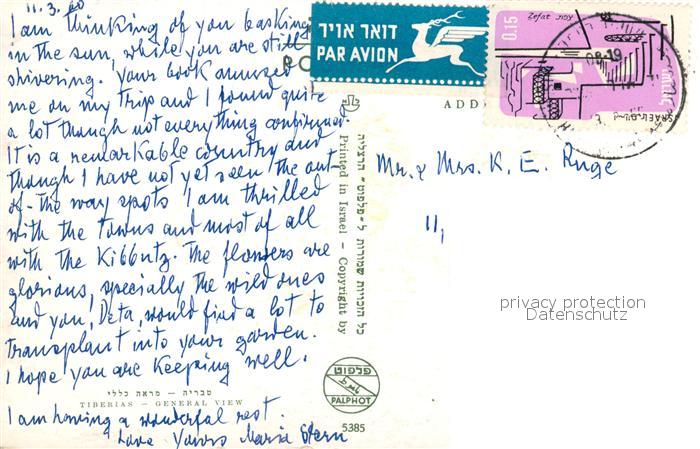 11.3.60
I am thinking of you basking
in the sun, while you are still
shivering. Your book amused
me on my trip and I found quite
a lot though not everything confirmed.
It is a remarkable country and
though I have not yet seen the out-
of-the way spots I am thrilled
with the towns and most of all
with the Kibbutz. The flowers are
glorious, specially the wild ones
and you, Deta, would find a lot to
transplant into your garden.
I hope you are keeping well.
טבריה — מראה כללי
TIBERIAS — GENERAL VIEW
I am having a wonderful rest.
Love Yours Maria Stern
דואר אויר
PAR AVION
0.15
Zefat צפת
ISRAEL
08-19
ADD
Mr. & Mrs. K. E. Ruge
11,
כל הזכויות שמורות ל־פלפוט־הרצליה
Printed in Israel - Copyright by
פלפוט
PALPHOT
5385
privacy protection
Datenschutz